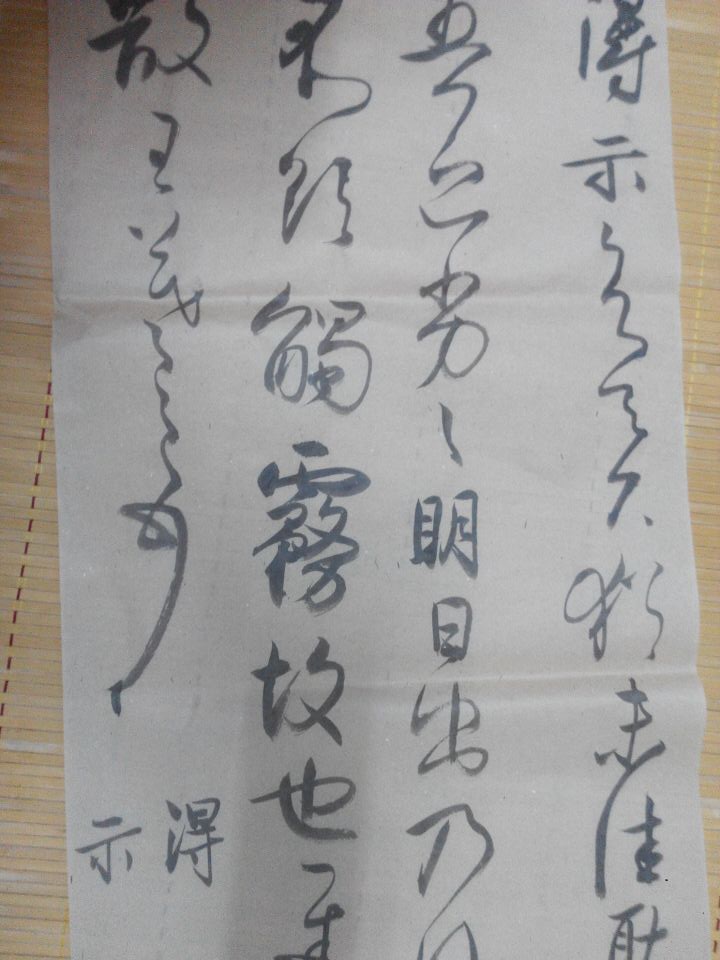 得示知足下猶未佳耿
吾亦劣〻明日出乃
不欲觸霧故也遲
散王羲之頓首
得
示